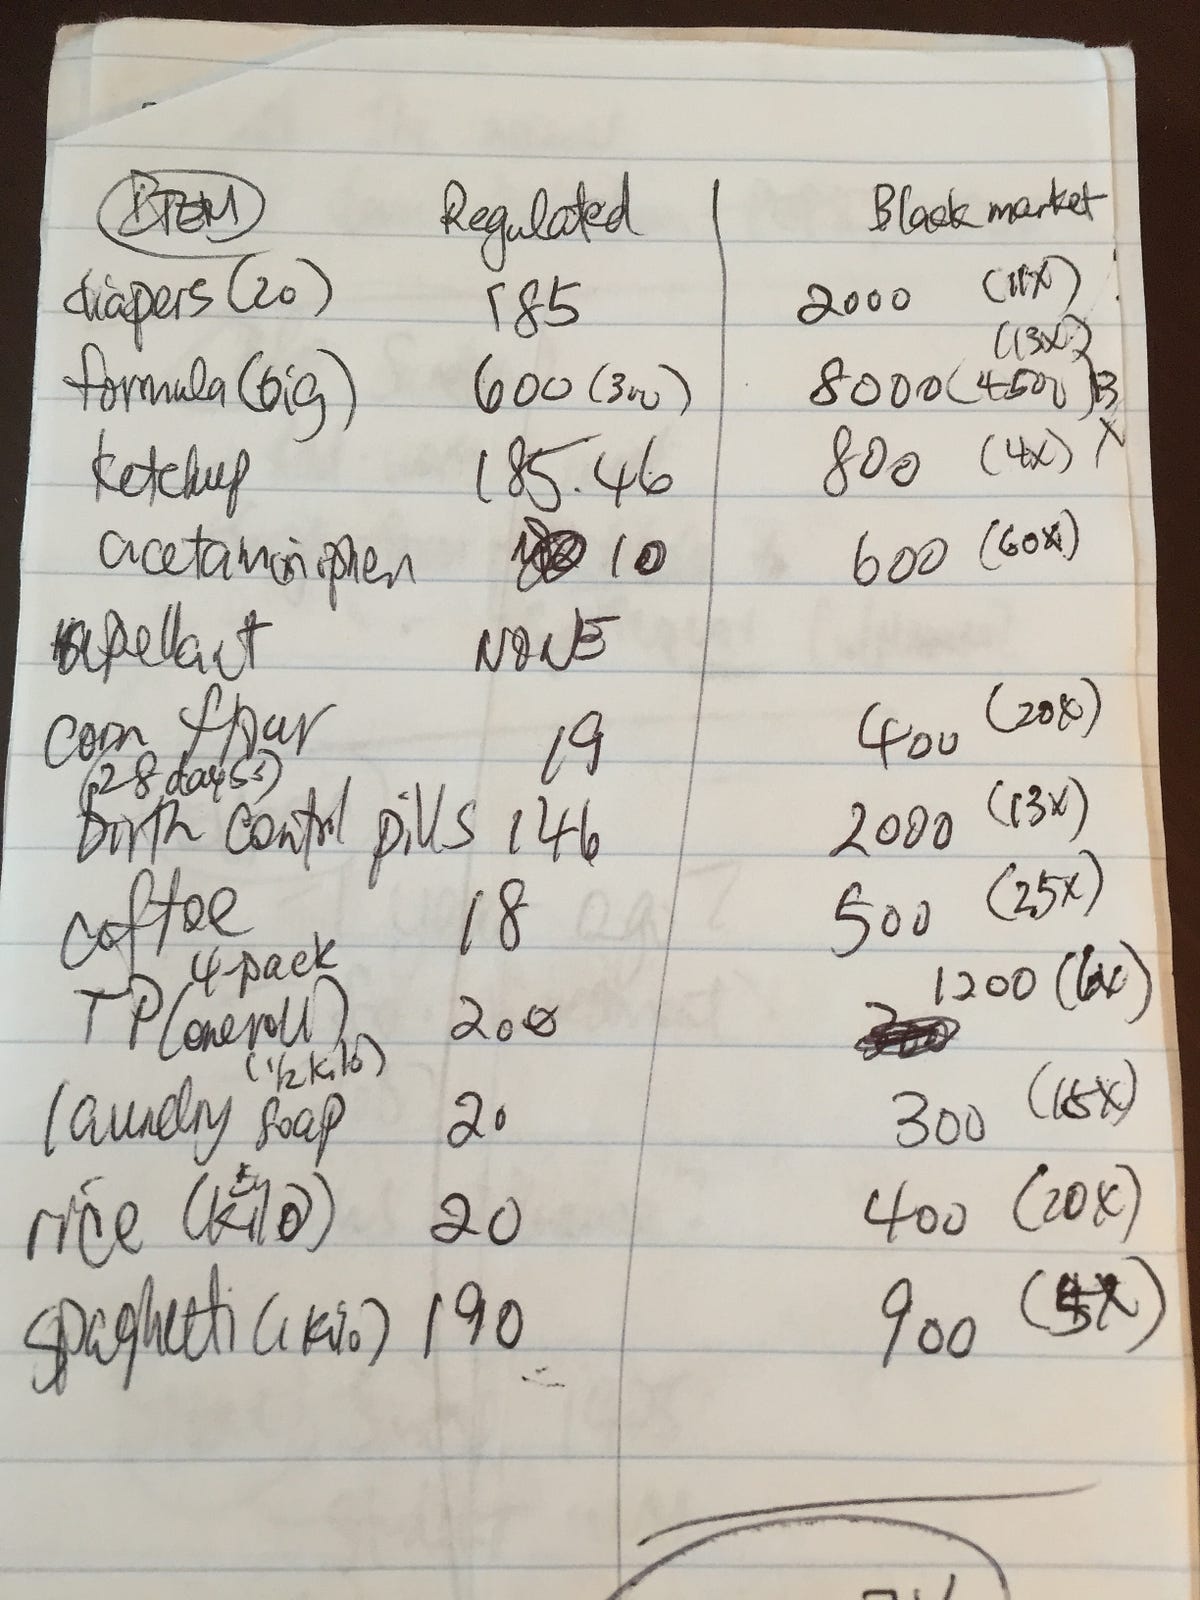 ITEM Regulated Black market
diapers (20) 185 2000 (11X)
(13X)
formula (big) 600 (300) 8000 (4500) 13
X
ketchup 185.46 800 (4X)
acetaminophen 10 600 (60X)
repellant NONE
corn flour 19 400 (20X)
(28 days)
birth control pills 146 2000 (13X)
coffee 18 500 (25X)
4-pack
TP (one roll) 200 1200 (6X)
(1/2 kilo)
laundry soap 20 300 (15X)
rice (kilo) 20 400 (20X)
spaghetti (1 kilo) 190 900 (5X)